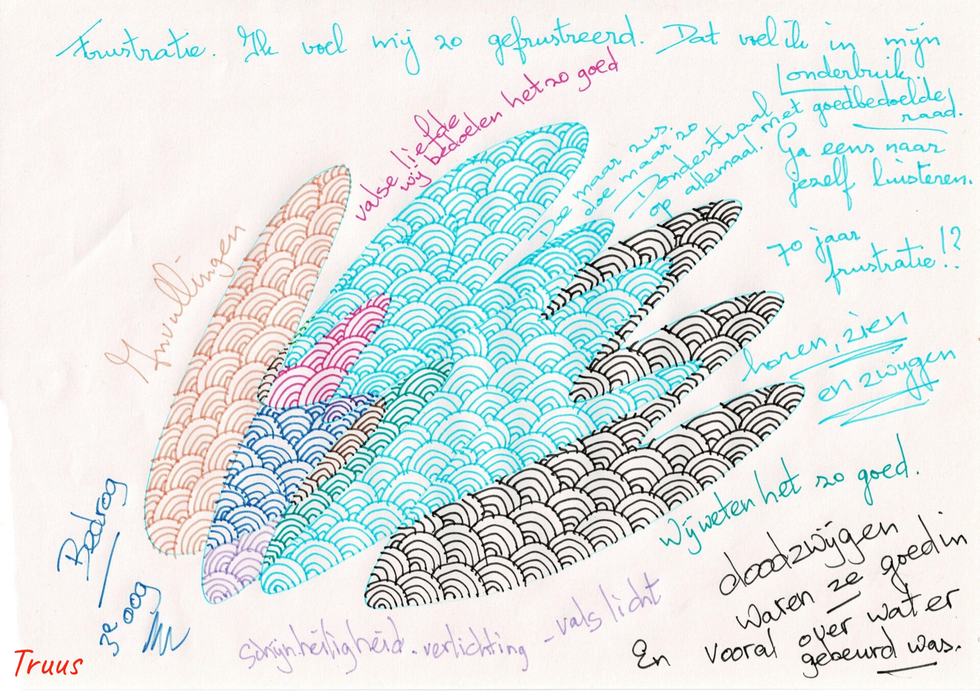 Frustratie. Ik voel mij zo gefrustreerd. Dat voel ik in mijn
onderbuik.
valse liefde
wij bedoelen het zo goed
Doe maar zus.
doe maar zo
Donderstraal
op
met goedbedoelde
raad.
allemaal.
Ga eens naar
jezelf luisteren.
70 jaar
frustratie!?
Invullingen
horen, zien
en zwijgen
Wij weten het zo goed.
Bedrog
3e oog
doodzwijgen
waren ze goed in
En vooral over wat er
gebeurd was.
schijnheiligheid. verlichting - vals licht
Truus